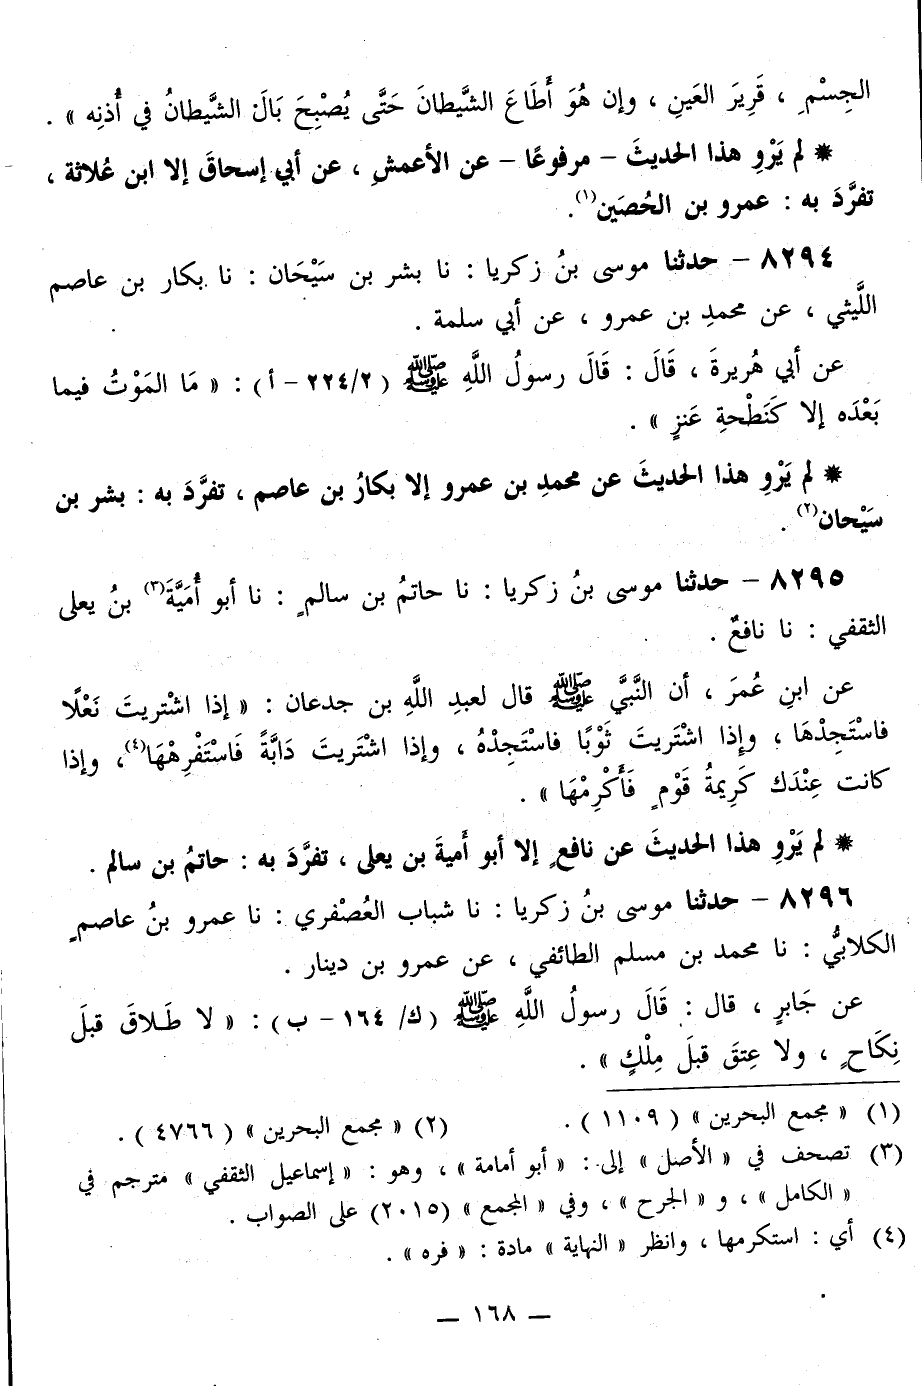 الجِسْمِ ، قَرِيرَ العَينِ ، وإن هُوَ أَطَاعَ الشَّيطانَ حَتَّى يُصْبِحَ بَالَ الشَّيطانُ في أُذنِه » .
* لم يَرْوِ هذا الحديثَ – مرفوعًا – عن الأعمشِ ، عن أبي إسحاقَ إلا ابن عُلاثة ،
تفرَّدَ به : عمرو بن الحُصَين(١).
٨٢٩٤ – حدثنا موسى بنُ زكريا : نا بشر بن سَيْحَان : نا بكار بن عاصم
اللَّيثي ، عن محمدِ بن عمرو ، عن أبي سلمة .
عن أبي هُريرةَ ، قَالَ : قَالَ رسولُ اللَّهِ ﷺ (٢٢٤/٢ – أ) : « مَا المَوْتُ فيما
بَعْدَه إلا كَنَطْحةِ عَنزٍ » .
* لم يَرْوِ هذا الحديثَ عن محمدِ بن عمرو إلا بكارُ بن عاصم ، تفرَّدَ به : بشر بن
سَيْحان(٢) .
٨٢٩٥ – حدثنا موسى بنُ زكريا : نا حاتمُ بن سالمٍ : نا أبو أُمَيَّةَ(٣) بنُ يعلى
الثقفي : نا نافعٌ .
عن ابنِ عُمرَ ، أن النَّبيَّ ﷺ قال لعبدِ اللَّهِ بن جدعان : « إذا اشْتريتَ نَعْلًا
فاسْتَجِدْهَا ، وإذا اشْتَريتَ ثَوْبًا فاسْتَجِدْهُ ، وإذا اشْتَريتَ دَابَّةً فَاسْتَفْرِهْهَا(٤)، وإذا
كانت عِنْدَك كَرِيمةُ قَوْمٍ فَأَكْرِمْهَا » .
* لم يَرْوِ هذا الحديثَ عن نافعٍ إلا أبو أميةَ بن يعلى ، تفرَّدَ به : حاتمُ بن سالم .
٨٢٩٦ – حدثنا موسى بنُ زكريا : نا شباب العُصْفري : نا عمرو بنُ عاصمٍ
الكلابيُّ : نا محمد بن مسلم الطائفي ، عن عمرو بن دينار .
عن جَابرٍ ، قال : قَالَ رسولُ اللَّهِ ﷺ (ك/ ١٦٤ – ب) : « لا طَلاقَ قبلَ
نِكَاحٍ ، ولا عِتقَ قبلَ مِلْكٍ » .
(١) « مجمع البحرين » (١١٠٩) . (٢) « مجمع البحرين » (٤٧٦٦) .
(٣) تصحف في « الأصل » إلى : « أبو أمامة » ، وهو : « إسماعيل الثقفي » مترجم في
« الكامل » ، و « الجرح » ، وفي « المجمع » (٢٠١٥) على الصواب .
(٤) أي : استكرمها ، وانظر « النهاية » مادة : « فره » .
— ١٦٨ —